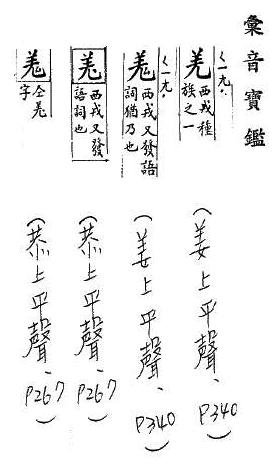 彙音寶鑑
ㄑㄧㄤ
羌 西戎種
族之一
(姜上平聲、P340)
ㄑㄧㄤ
羗 西戎又發語
詞猶乃也
(姜上平聲、P340)
羌 西戎又發
語詞也
(恭上平聲、P267)
羗 仝羌
字
(恭上平聲、P267)